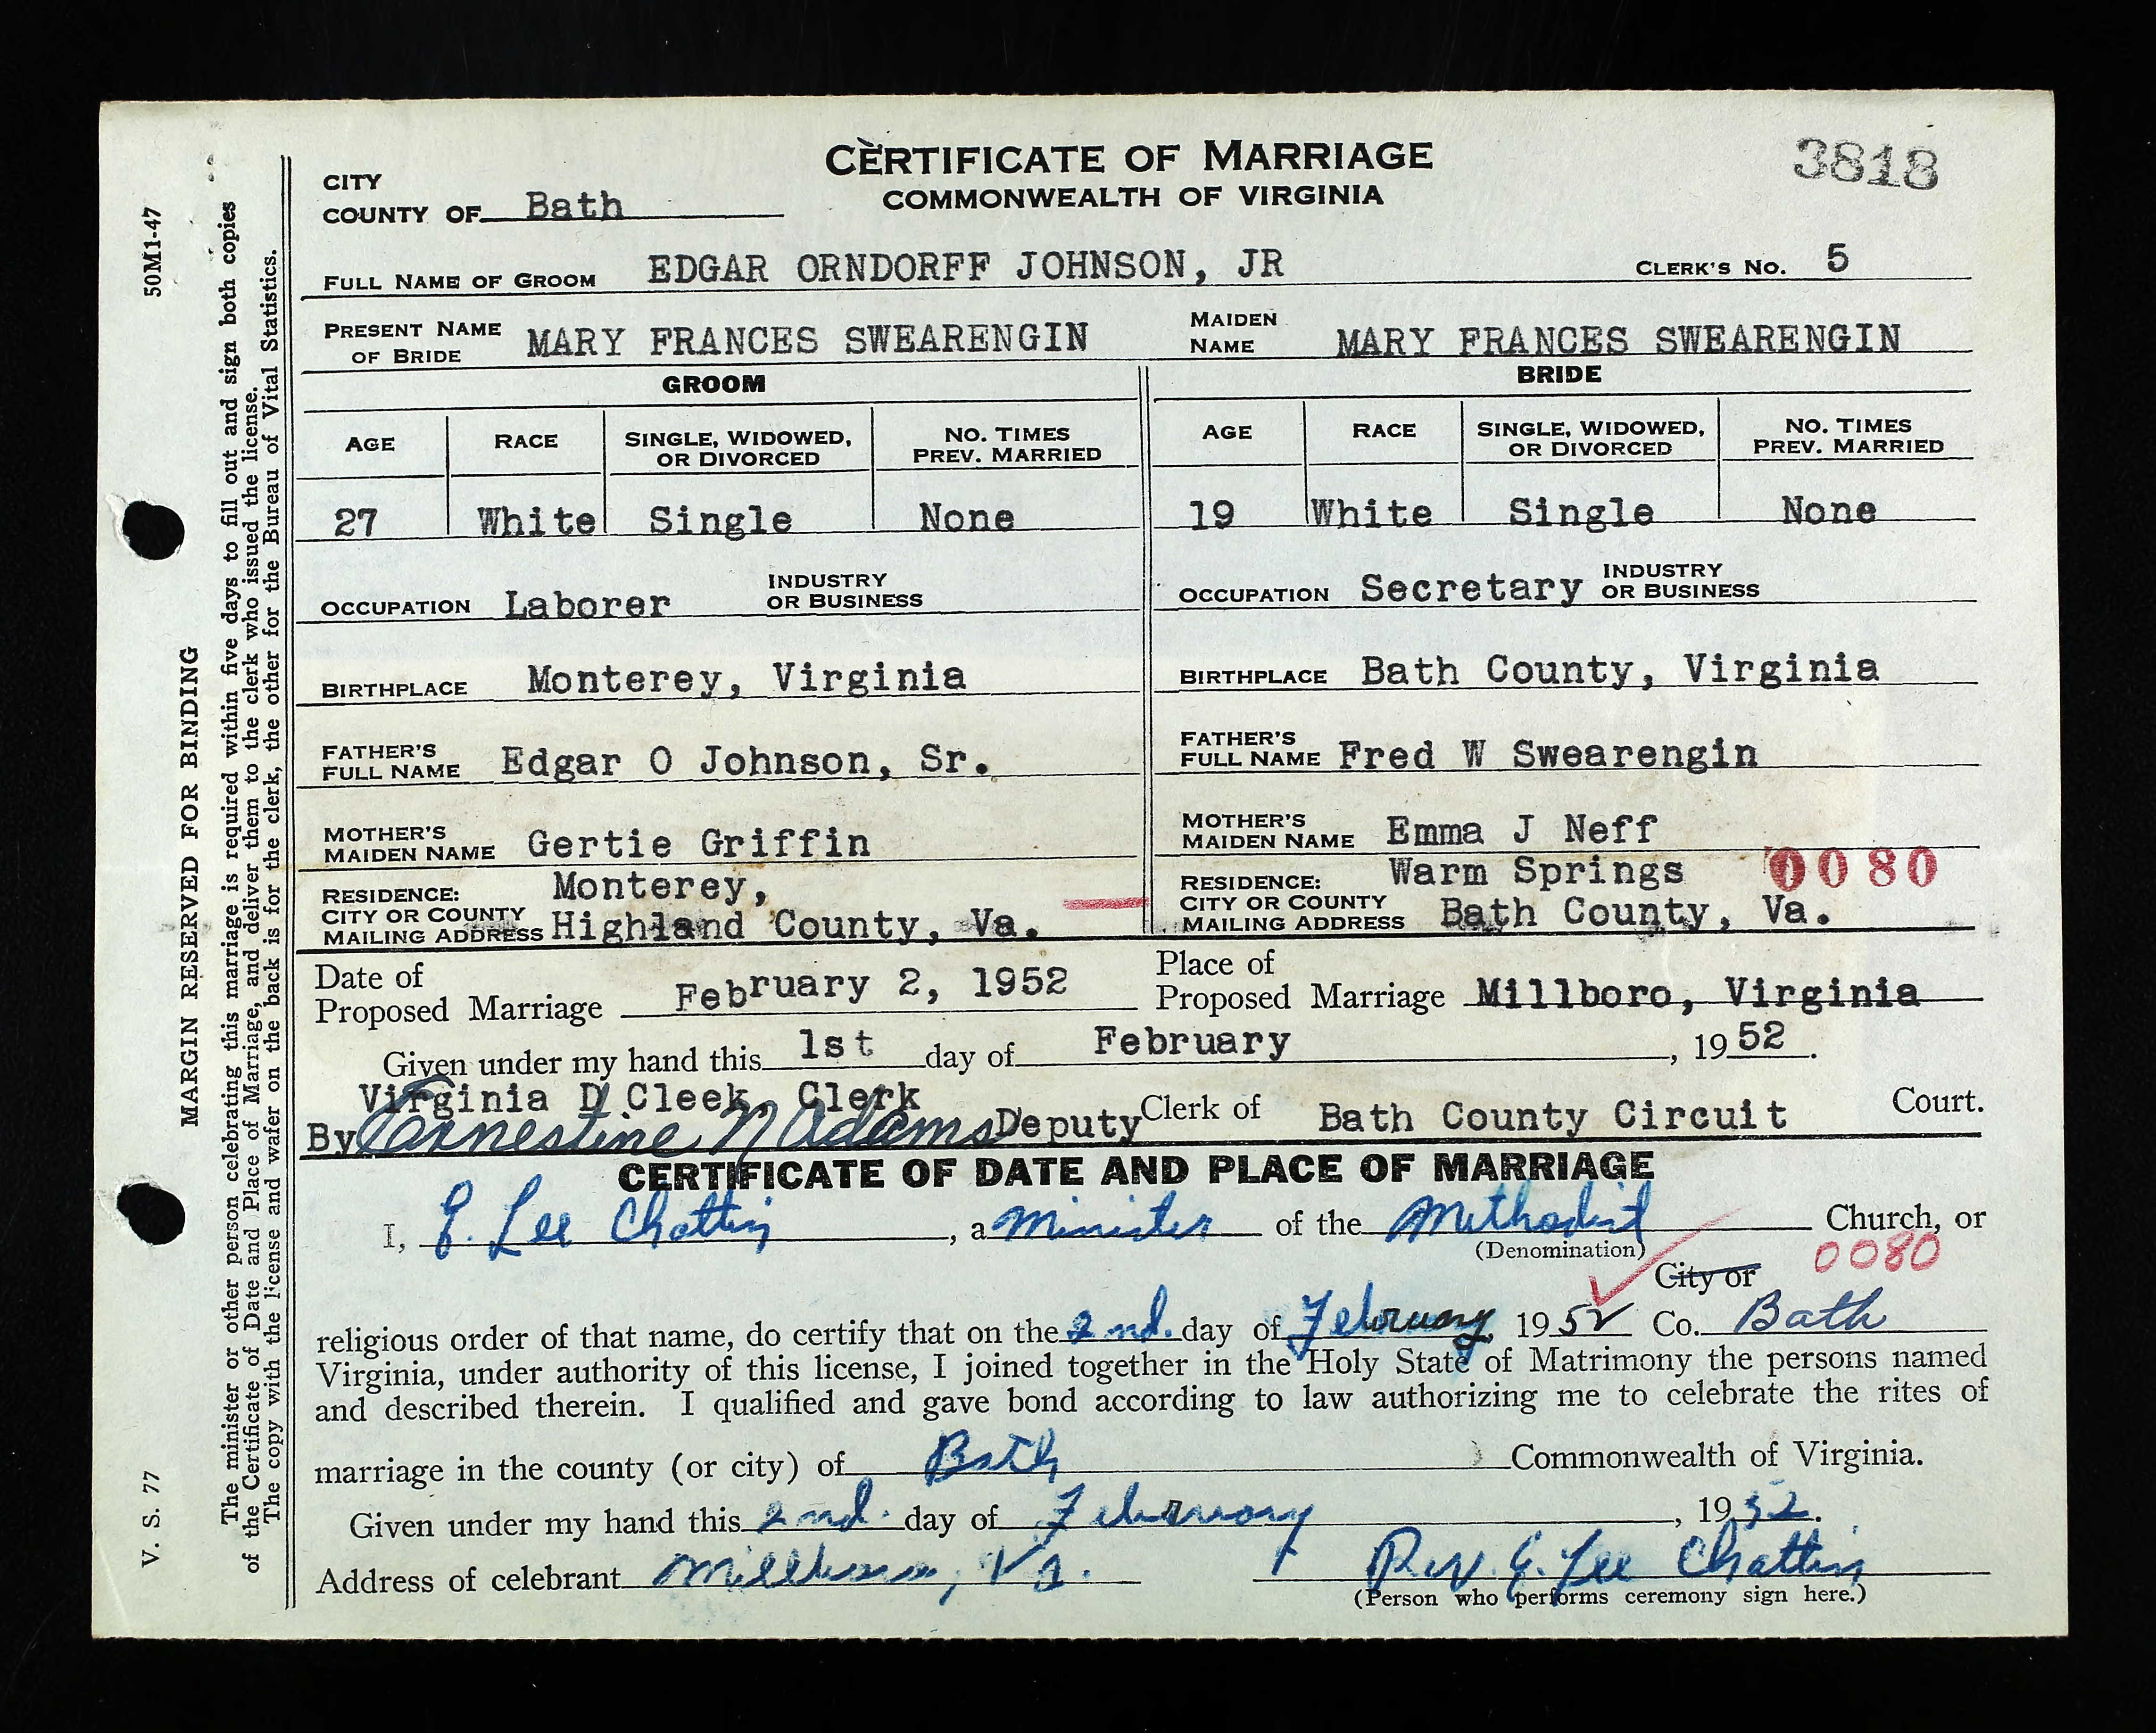 CERTIFICATE OF MARRIAGE
COMMONWEALTH OF VIRGINIA
3818
CITY
COUNTY OF Bath
FULL NAME OF GROOM EDGAR ORNDORFF JOHNSON, JR CLERK'S NO. 5
PRESENT NAME OF BRIDE MARY FRANCES SWEARENGIN MAIDEN NAME MARY FRANCES SWEARENGIN
GROOM BRIDE
AGE RACE SINGLE, WIDOWED, OR DIVORCED NO. TIMES PREV. MARRIED AGE RACE SINGLE, WIDOWED, OR DIVORCED NO. TIMES PREV. MARRIED
27 White Single None 19 White Single None
OCCUPATION Laborer INDUSTRY OR BUSINESS OCCUPATION Secretary INDUSTRY OR BUSINESS
BIRTHPLACE Monterey, Virginia BIRTHPLACE Bath County, Virginia
FATHER'S FULL NAME Edgar O Johnson, Sr. FATHER'S FULL NAME Fred W Swearengin
MOTHER'S MAIDEN NAME Gertie Griffin MOTHER'S MAIDEN NAME Emma J Neff
RESIDENCE: CITY OR COUNTY MAILING ADDRESS Monterey, Highland County, Va. RESIDENCE: CITY OR COUNTY MAILING ADDRESS Warm Springs Bath County, Va. 0080
Date of Proposed Marriage February 2, 1952 Place of Proposed Marriage Millboro, Virginia
Given under my hand this 1st day of February, 1952.
Virginia D Cleek, Clerk
By Ernestine N Adams Deputy Clerk of Bath County Circuit Court.
CERTIFICATE OF DATE AND PLACE OF MARRIAGE
I, E. Lee Chattin, a Minister of the Methodist Church, or
(Denomination) 0080
City or
religious order of that name, do certify that on the 2nd. day of February 1952 Co. Bath
Virginia, under authority of this license, I joined together in the Holy State of Matrimony the persons named
and described therein. I qualified and gave bond according to law authorizing me to celebrate the rites of
marriage in the county (or city) of Bath Commonwealth of Virginia.
Given under my hand this 2nd. day of February, 1952.
Address of celebrant Millboro, Va. Rev. E. Lee Chattin
(Person who performs ceremony sign here.)
50M1-47
V. S. 77
MARGIN RESERVED FOR BINDING
The minister or other person celebrating this marriage is required within five days to fill out and sign both copies
of the Certificate of Date and Place of Marriage, and deliver them to the clerk who issued the license.
The copy with the license and wafer on the back is for the clerk, the other for the Bureau of Vital Statistics.